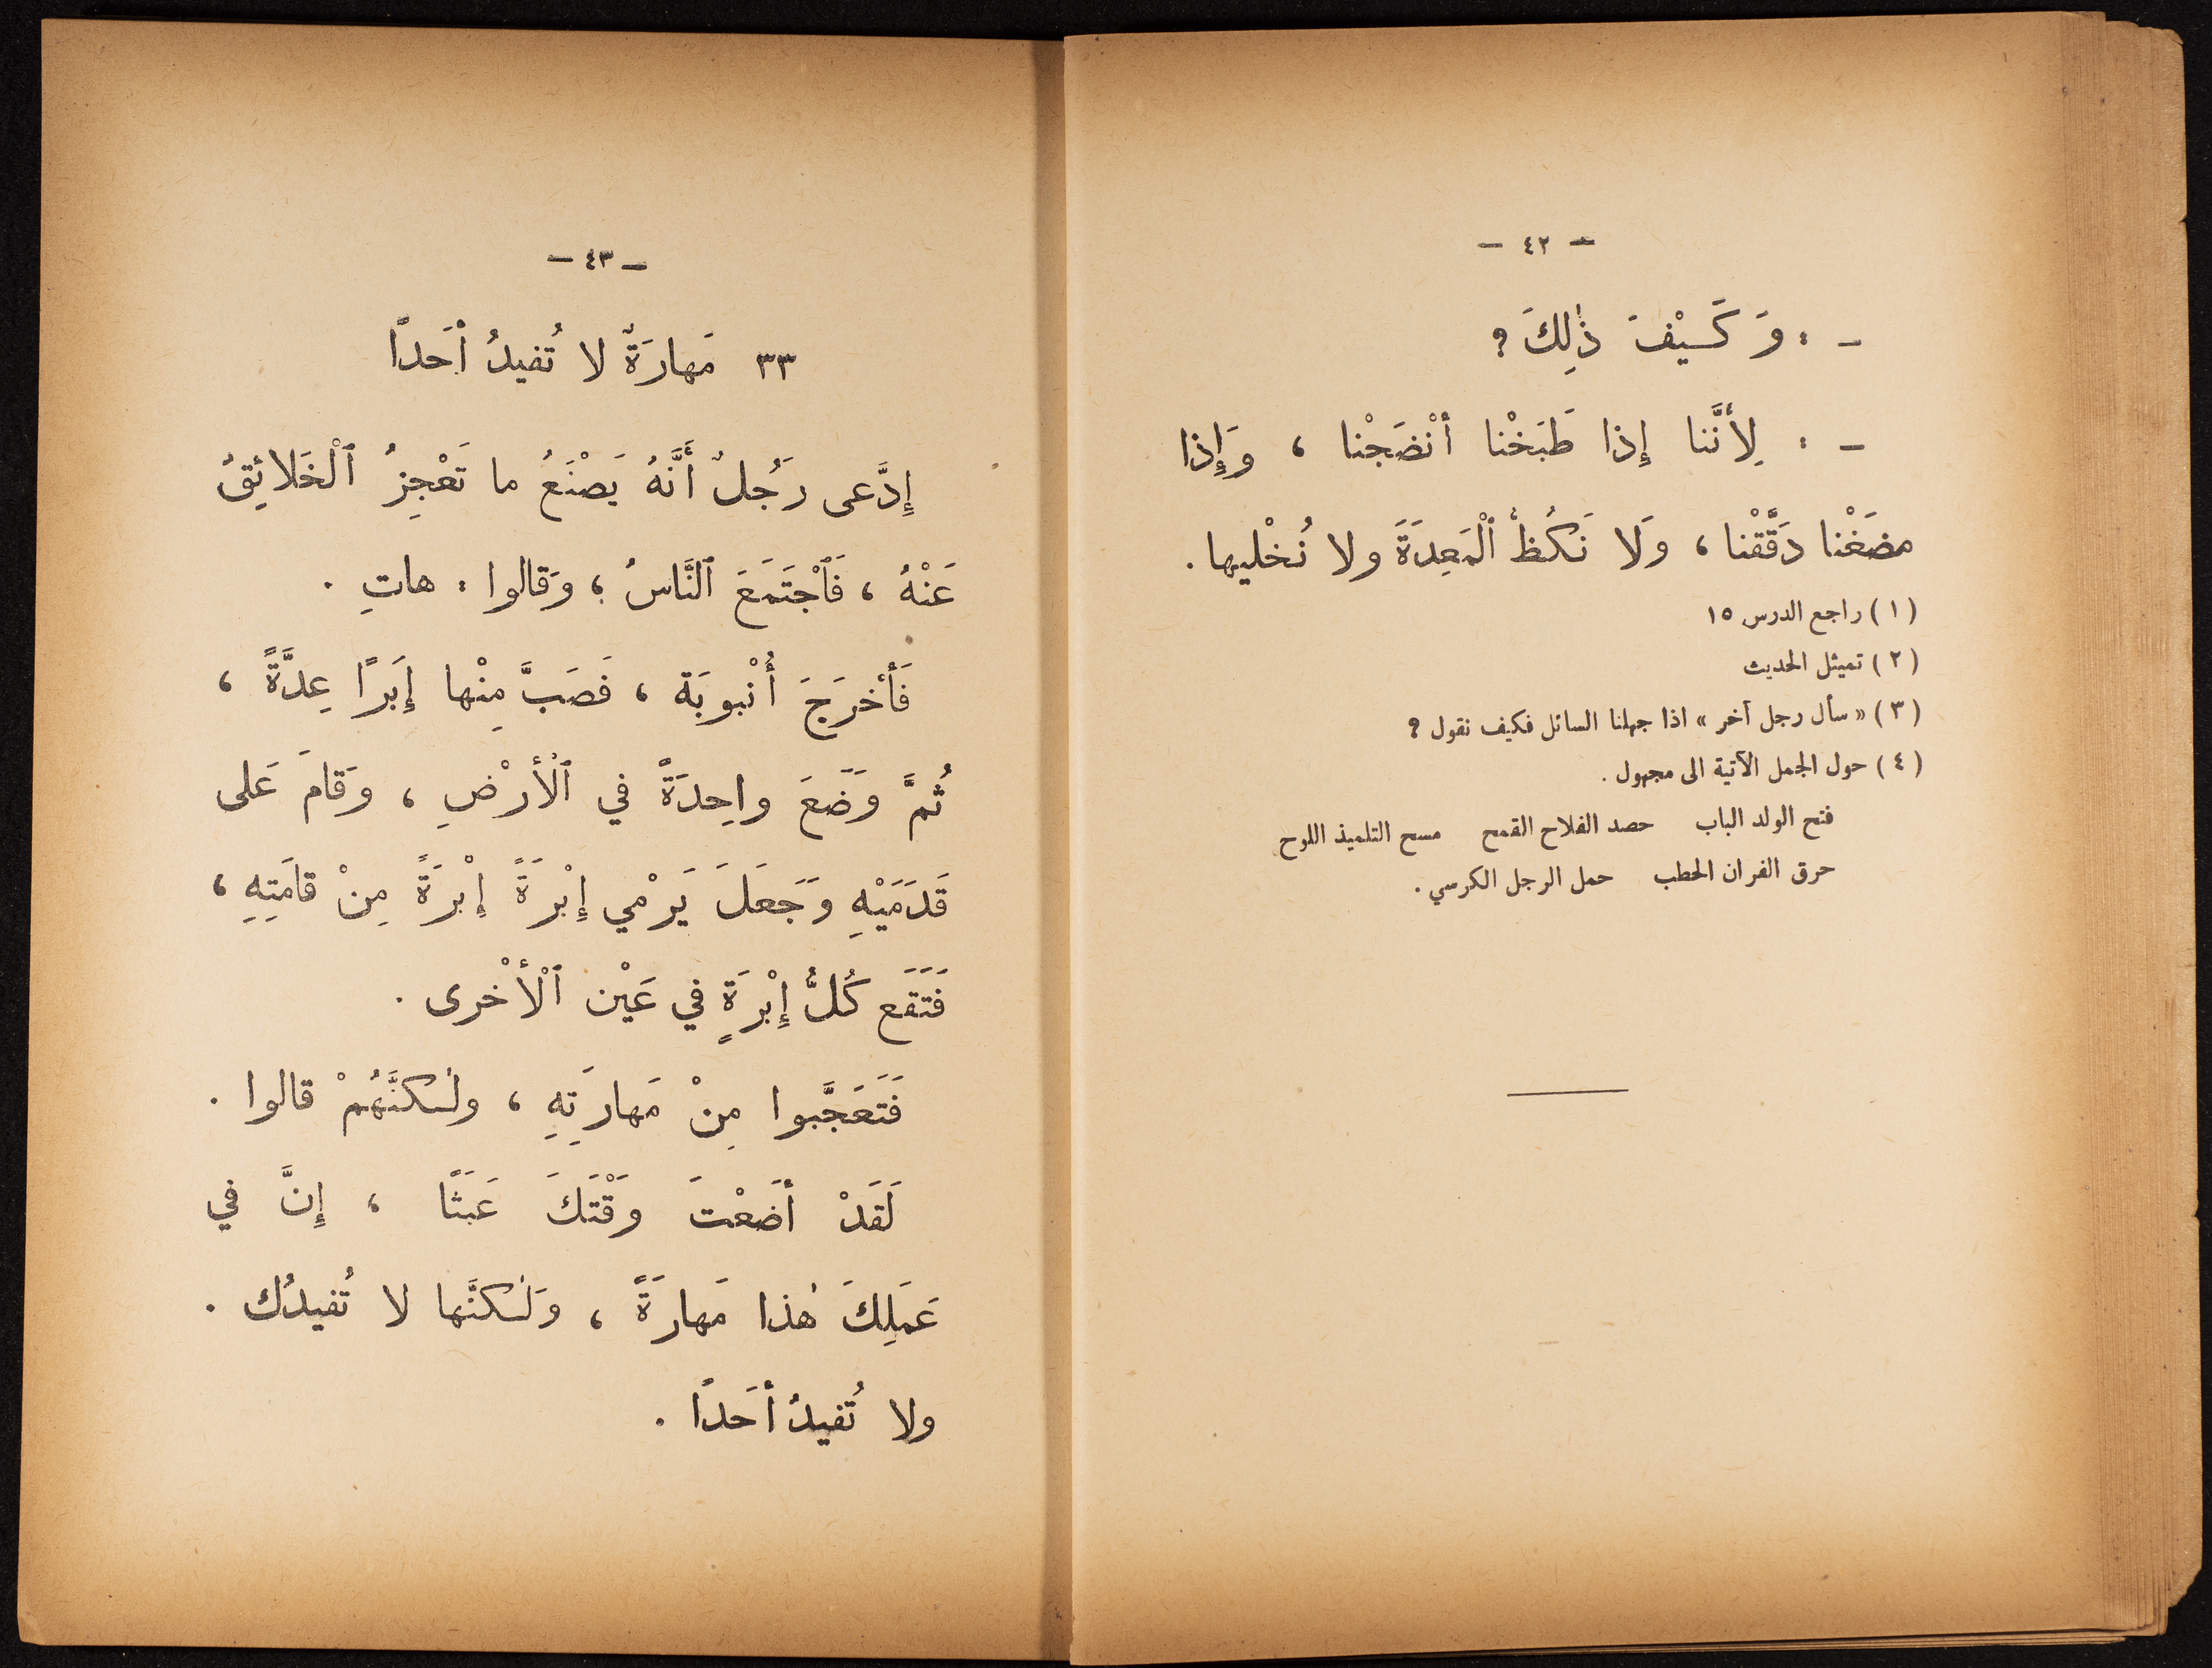 — ٤٢ —
– : وَ كَيْفَ ذٰلِكَ ؟
– : لِأَنَّنا إِذا طَبَخْنا أَنْضَجْنا ، وَإِذا
مضَغْنا دَقَّقْنا ، وَلا نَكُظُّ ٱلْمَعِدَةَ ولا نُخْليها .
( ١ ) راجع الدرس ١٥
( ٢ ) تمثيل الحديث
( ٣ ) « سأل رجل آخر » اذا جهلنا السائل فكيف نقول ؟
( ٤ ) حول الجمل الآتية الى مجهول .
فتح الولد الباب حصد الفلاح القمح مسح التلميذ اللوح
حرق الفران الحطب حمل الرجل الكرسي .
— ٤٣ —
٣٣ مَهارَةٌ لا تُفيدُ أَحَدًا
إِدَّعى رَجُلٌ أَنَّهُ يَصْنَعُ ما تَعْجِزُ ٱلْخَلائِقُ
عَنْهُ ، فَٱجْتَمَعَ ٱلنَّاسُ ؛ وَقالوا : هاتِ .
فَأَخرَجَ أُنْبوبَة ، فَصَبَّ مِنْها إِبَرًا عِدَّةً ،
ثُمَّ وَضَعَ واحِدَةً في ٱلْأَرْضِ ، وَقامَ عَلى
قَدَمَيْهِ وَجَعَلَ يَرْمي إِبْرَةً إِبْرَةً مِنْ قامَتِهِ ،
فَتَقَع كُلُّ إِبْرَةٍ في عَيْن ٱلْأُخْرى .
فَتَعَجَّبوا مِنْ مَهارَتِهِ ، ولٰكنَّهُمْ قالوا .
لَقَدْ أَضَعْتَ وَقْتَكَ عَبَثًا ، إِنَّ في
عَمَلِكَ هٰذا مَهارَةً ، وَلٰكنَّها لا تُفيدُك .
ولا تُفيدُ أَحَدًا .